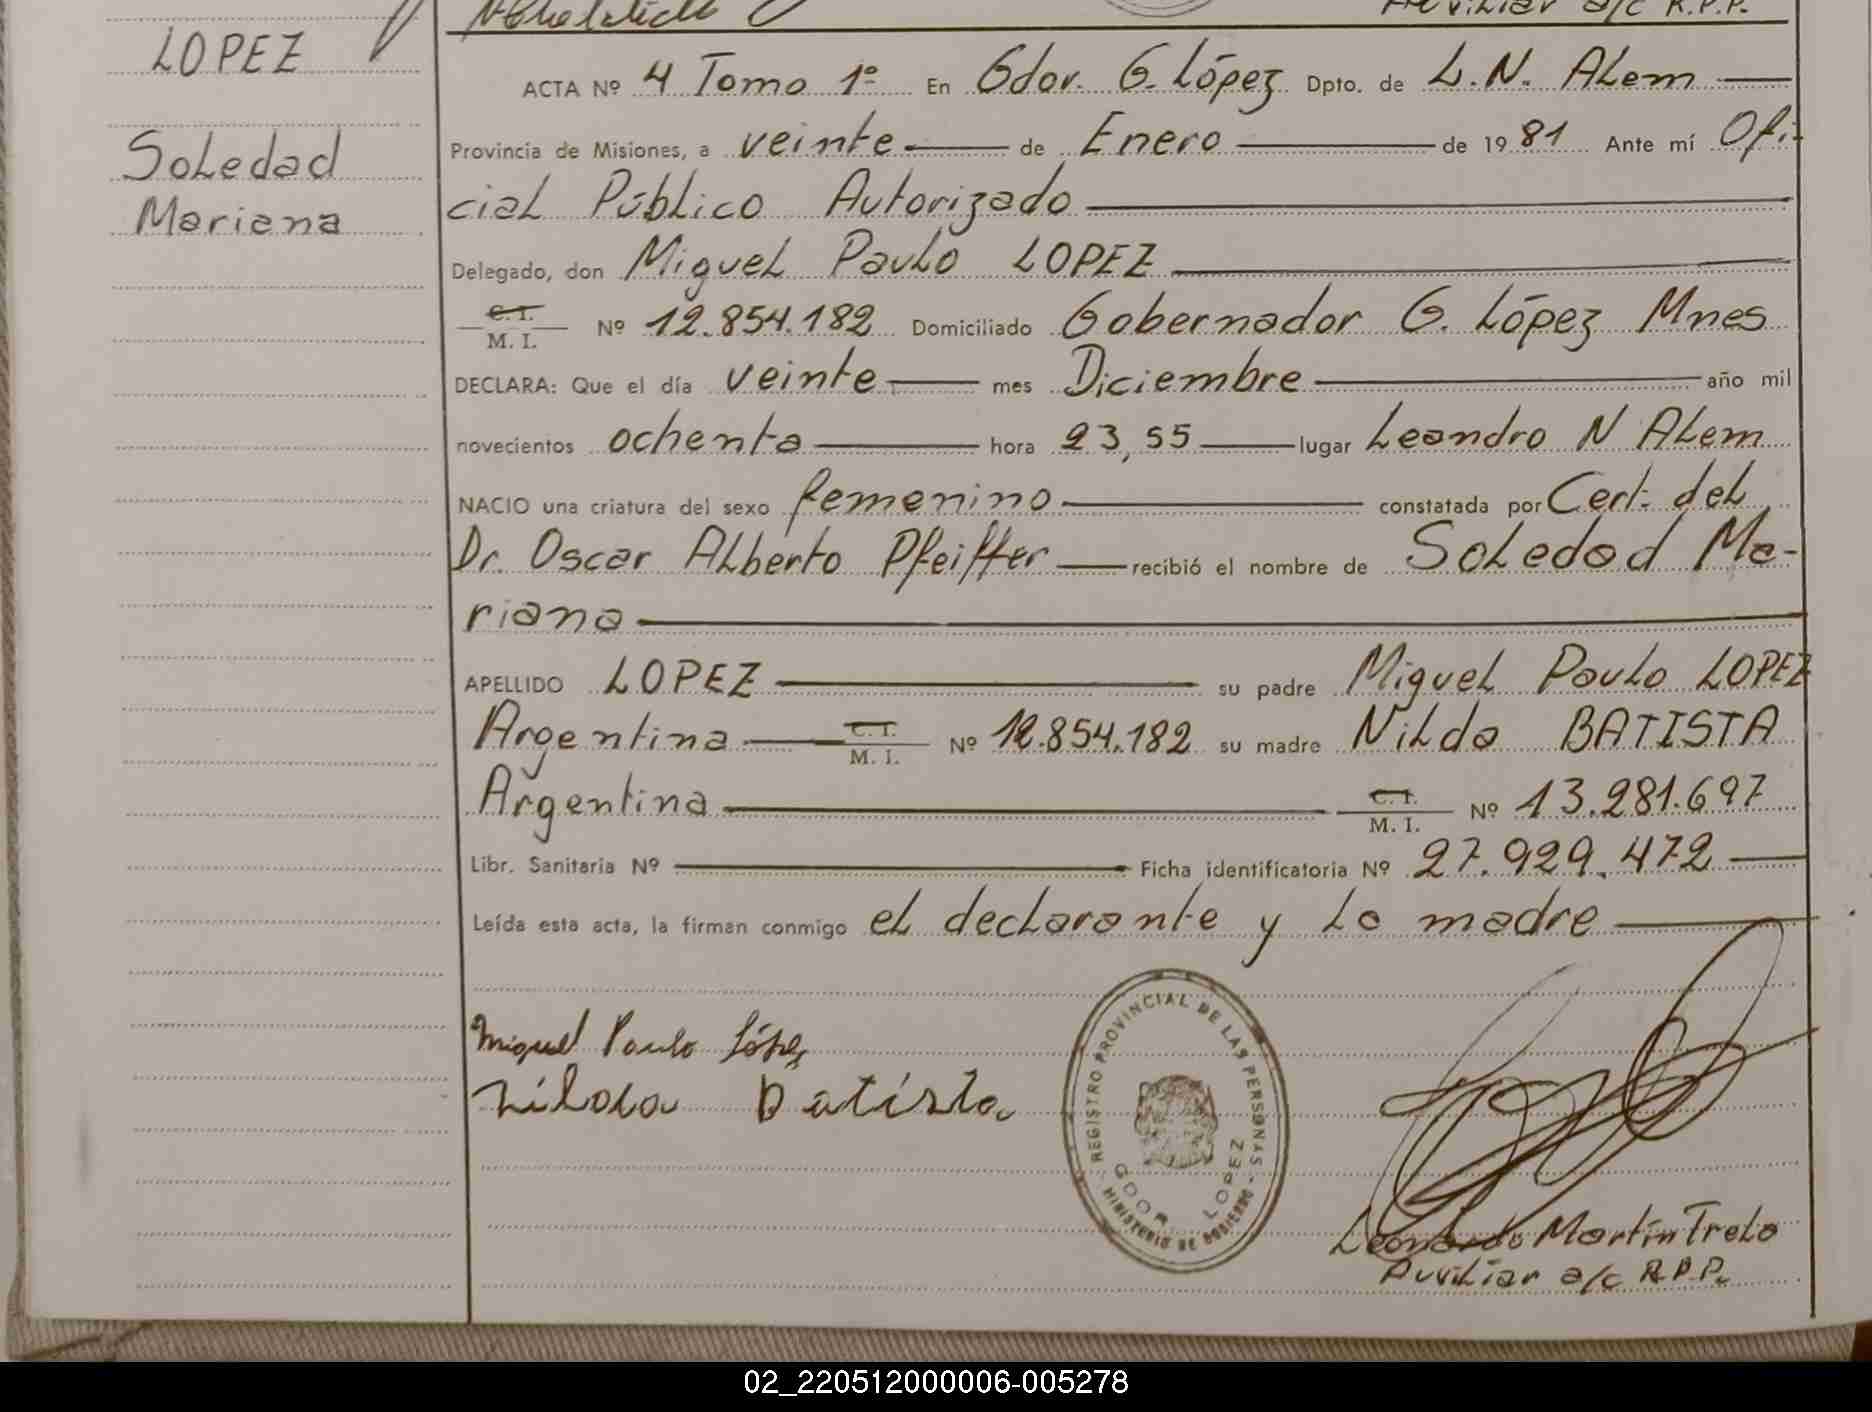 Auxiliar a/c R.P.P.
LOPEZ
Soledad
Mariana
ACTA Nº 4 Tomo 1º En Gdor. G. López Dpto. de L.N. ALem
Provincia de Misiones, a veinte de Enero de 1981 Ante mí Ofi-
cial Público Autorizado
Delegado, don Miguel Paulo LOPEZ
C.I. M.I. Nº 12.854.182 Domiciliado Gobernador G. López Mnes
DECLARA: Que el día veinte mes Diciembre año mil
novecientos ochenta hora 23,55 lugar Leandro N ALem
NACIO una criatura del sexo femenino constatada por Cert. del
Dr. Oscar ALberto Pfeiffer recibió el nombre de Soledad Ma-
riana
APELLIDO LOPEZ su padre Miguel Paulo LOPEZ
Argentina C.I. M.I. Nº 12.854.182 su madre Nilda BATISTA
Argentina C.I. M.I. Nº 13.281.697
Libr. Sanitaria Nº Ficha identificatoria Nº 27.929.472
Leída esta acta, la firman conmigo el declarante y la madre
Miguel Paulo López
Nilda Batista
REGISTRO PROVINCIAL DE LAS PERSONAS
GDOR. LOPEZ
MINISTERIO DE GOBIERNO
Leonardo Martín Trela
Auxiliar a/c R.P.P.
02_220512000006-005278